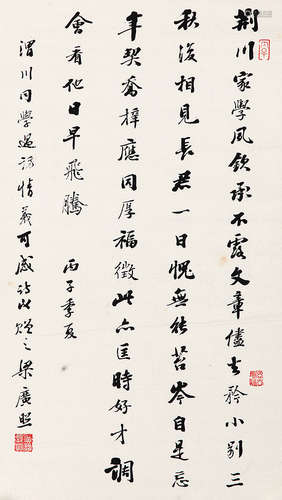 荆川家學夙欽承不露文章儘去矜小別三
秋復相見長君一日愧無能苔岑自是忘
年契喬梓應同厚福徵此亦匡時好才調
會看他日早飛騰 丙子季夏
渭川同學過訪情義可感詩此贈之梁廣照